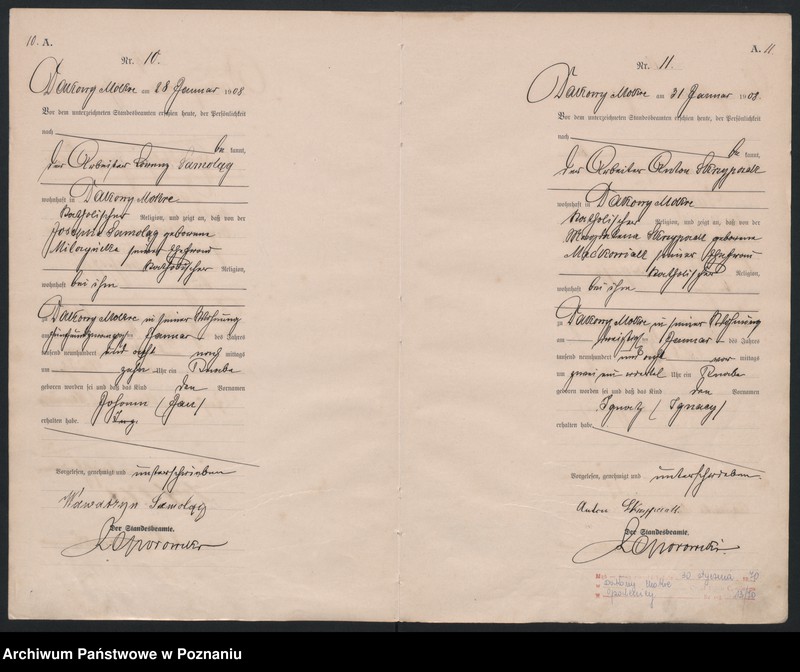 10. A.
Nr. 10.
Dalkowy Mokre am 28 Januar 1908
Vor dem unterzeichneten Standesbeamten erschien heute, der Persönlichkeit
nach be kannt,
der Arbeiter Lorenz Samoląg
wohnhaft in Dalkowy Mokre
katholischer Religion, und zeigt an, daß von der
Josepha Samoląg geborene
seiner Ehefrau
katholischer Religion,
wohnhaft bei ihm
zu Dalkowy Mokre in seiner Wohnung
am fünfundzwanzigsten Januar des Jahres
tausend neunhundert und acht nach mittags
um zehn Uhr ein Knabe
geboren worden sei und daß das Kind den Vornamen
Johann (Jan)
erhalten habe.
Vorgelesen, genehmigt und unterschrieben
Wawrzyn Samoląg
Der Standesbeamte.
A. 11
Nr. 11.
Dalkowy Mokre am 31 Januar 1908.
Vor dem unterzeichneten Standesbeamten erschien heute, der Persönlichkeit
nach be kannt,
der Arbeiter Anton Skrzypczak
wohnhaft in Dalkowy Mokre
katholischer Religion, und zeigt an, daß von der
Magdalena Skrzypczak geborene
Maćkowiak seiner Ehefrau
katholischer Religion,
wohnhaft bei ihm
zu Dalkowy Mokre in seiner Wohnung
am dreißigsten Januar des Jahres
tausend neunhundert und acht vor mittags
um Uhr ein Knabe
geboren worden sei und daß das Kind den Vornamen
Ignatz (Ignacy)
erhalten habe.
Vorgelesen, genehmigt und unterschrieben.
Anton Skrzypczak
Der Standesbeamte.
Archiwum Państwowe w Poznaniu